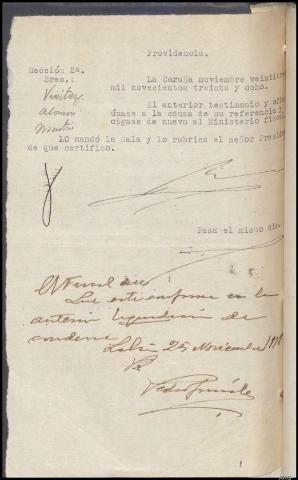 Providencia.
Sección 2ª.
Sres.:
Vieitez
Alonso
Martin
La Coruña noviembre veinti
mil novecientos treinta y ocho.
El anterior testimonio y ofi
únase a la causa de su referencia y
óigase de nuevo al Ministerio fisca
LO mandó la Sala y lo rubrica el señor Presid
de que certifico.
Pasa el mismo día.
El Fiscal dice
Que está conforme en la
anterior liquidación de
condena
25 Noviembre 1938